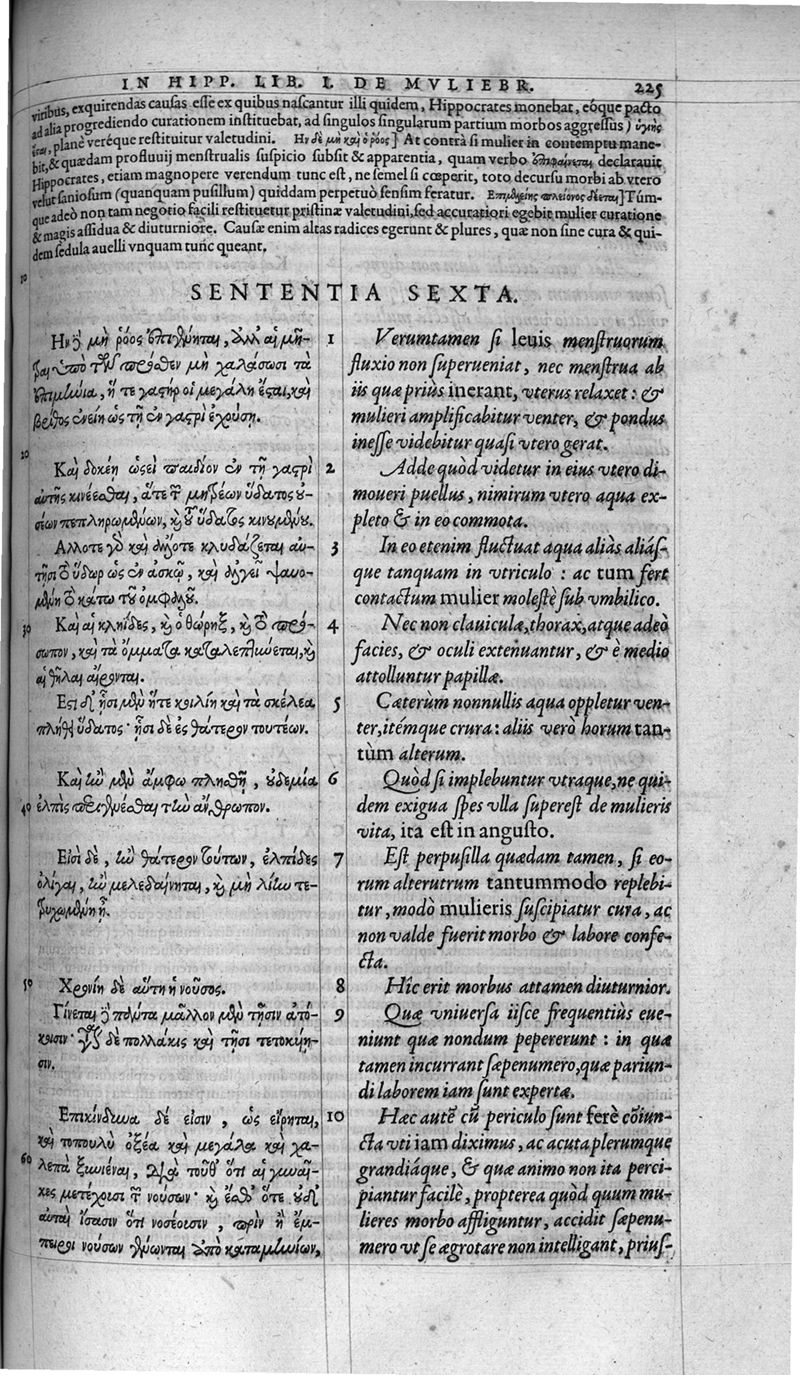 IN HIPP. LIB. I. DE MVLIEBR. 225
viribus, exquirendas causas esse ex quibus nascantur illi quidem, Hippocrates monebat, eóque pacto
ad alia progrediendo curationem instituebat, ad singulos singularum partium morbos aggressus) ὑγιὴς
planè veréque restituitur valetudini. Ην δὲ μὴ καὶ ὁ ῥόος] At contrà si mulier in contemptu mane-
bit, & quædam profluuij menstrualis suspicio subsit & apparentia, quam verbo declarauit
Hippocrates, etiam magnopere verendum tunc est, ne semel si cœperit, toto decursu morbi ab vtero
velut saniosum (quanquam pusillum) quiddam perpetuò sensim feratur. Επιμελείης πλείονος δέεται] Túm-
que adeò non tam negotio facili restituetur pristinæ valetudini, sed accuratiori egebit mulier curatione
& magis assidua & diuturniore. Causæ enim altas radices egerunt & plures, quæ non sine cura & qui-
dem sedula auelli vnquam tunc queant.
10
SENTENTIA SEXTA.
Ην δὲ μὴ ῥόος ἐπιγένηται, ἀλλ' αἱ μῆ-
τραι ὑπὸ τῶν πρόσθεν μὴ χαλάσωσι τὰ
ἐπιμήνια, ἥ τε γαστὴρ οἱ μεγάλη ἔσται, καὶ
βρῖθος ἐνείη ὡς τῇ ἐν γαστρὶ ἐχούσῃ.
20
Καὶ δοκέη ὡσεὶ παιδίον ἐν τῇ γαστρὶ
αὐτῆς κινέεσθαι, ἅτε τῶν μητρέων ὕδατος ου-
σέων πεπληρωμένων, καὶ τοῦ ὕδατος κινουμένου.
Αλλοτε γὰρ καὶ ἄλλοτε κλυδάζεται αὐ-
τῇσι τὸ ὕδωρ ὡς ἐν ἀσκῷ, καὶ ἀλγεῖ ψαυο-
μένη τὸ κάτω τοῦ ὀμφαλοῦ.
30 Καὶ αἱ κληῖδες, καὶ ὁ θώρηξ, καὶ τὸ πρόσ-
ωπον, καὶ τὰ ὄμματα καταλεπτύνεται, καὶ
αἱ θηλαὶ αἴρονται.
Εστι δ' ᾗσι μὲν ἥτε κοιλίη καὶ τὰ σκέλεα
πλήθῃ ὕδατος· ᾗσι δὲ ἐς θάτερον τουτέων.
Καὶ ἢν μὲν ἄμφω πλησθῇ, οὐδεμία
40 ἐλπὶς περιγενέσθαι τὴν ἄνθρωπον.
Εἰσὶ δὲ, ἢν θάτερον τούτων, ἐλπίδες
ὀλίγαι, ἢν μελεδαίνηται, καὶ μὴ λίην τε-
τρυχωμένη ᾖ.
50 Χρονίη δὲ αὕτη ἡ νοῦσος.
Γίνεται δὲ πάντα μᾶλλον μὲν τῇσιν ἀτό-
κοισιν· δὲ πολλάκις καὶ τῇσι τετοκυίῃ-
σιν.
Επικίνδυνα δέ εἰσιν, ὡς εἴρηται,
καὶ τοπουλὺ ὀξέα καὶ μεγάλα καὶ χα-
60 λεπὰ ξυνιέναι, διὰ τοῦθ' ὅτι αἱ γυναῖ-
κες μετέχουσι τῶν νούσων· καὶ ἔσθ' ὅτε οὐδ'
αὐταὶ ἴσασιν ὅτι νοσέουσιν, πρὶν ἢ ἔμ-
πειροι νούσων γένωνται ἀπὸ καταμηνίων,
1 Verumtamen si leuis menstruorum
fluxio non superueniat, nec menstrua ab
iis quæ priùs inerant, vterus relaxet: &
mulieri amplificabitur venter, & pondus
inesse videbitur quasi vtero gerat.
2 Adde quòd videtur in eius vtero di-
moueri puellus, nimirum vtero aqua ex-
pleto & in eo commota.
3 In eo etenim fluctuat aqua aliàs aliás-
que tanquam in vtriculo: ac tum fert
contactum mulier molestè sub vmbilico.
4 Nec non clauiculæ, thorax, atque adeò
facies, & oculi extenuantur, & è medio
attolluntur papillæ.
5 Cæterùm nonnullis aqua oppletur ven-
ter, itémque crura: aliis verò horum tan-
tùm alterum.
6 Quòd si implebuntur vtraque, ne qui-
dem exigua spes vlla superest de mulieris
vita, ita est in angusto.
7 Est perpusilla quædam tamen, si eo-
rum alterutrum tantummodo replebi-
tur, modò mulieris suscipiatur cura, ac
non valde fuerit morbo & labore confe-
cta.
8 Hîc erit morbus attamen diuturnior.
9 Quæ vniuersa iisce frequentiùs eue-
niunt quæ nondum pepererunt: in quæ
tamen incurrant sæpenumero, quæ pariun-
di laborem iam sunt expertæ.
10 Hæc autē cū periculo sunt ferè cōiun-
cta vti iam diximus, ac acuta plerumque
grandiáque, & quæ animo non ita perci-
piantur facilè, propterea quòd quum mu-
lieres morbo affliguntur, accidit sæpenu-
mero vt se ægrotare non intelligant, prius-